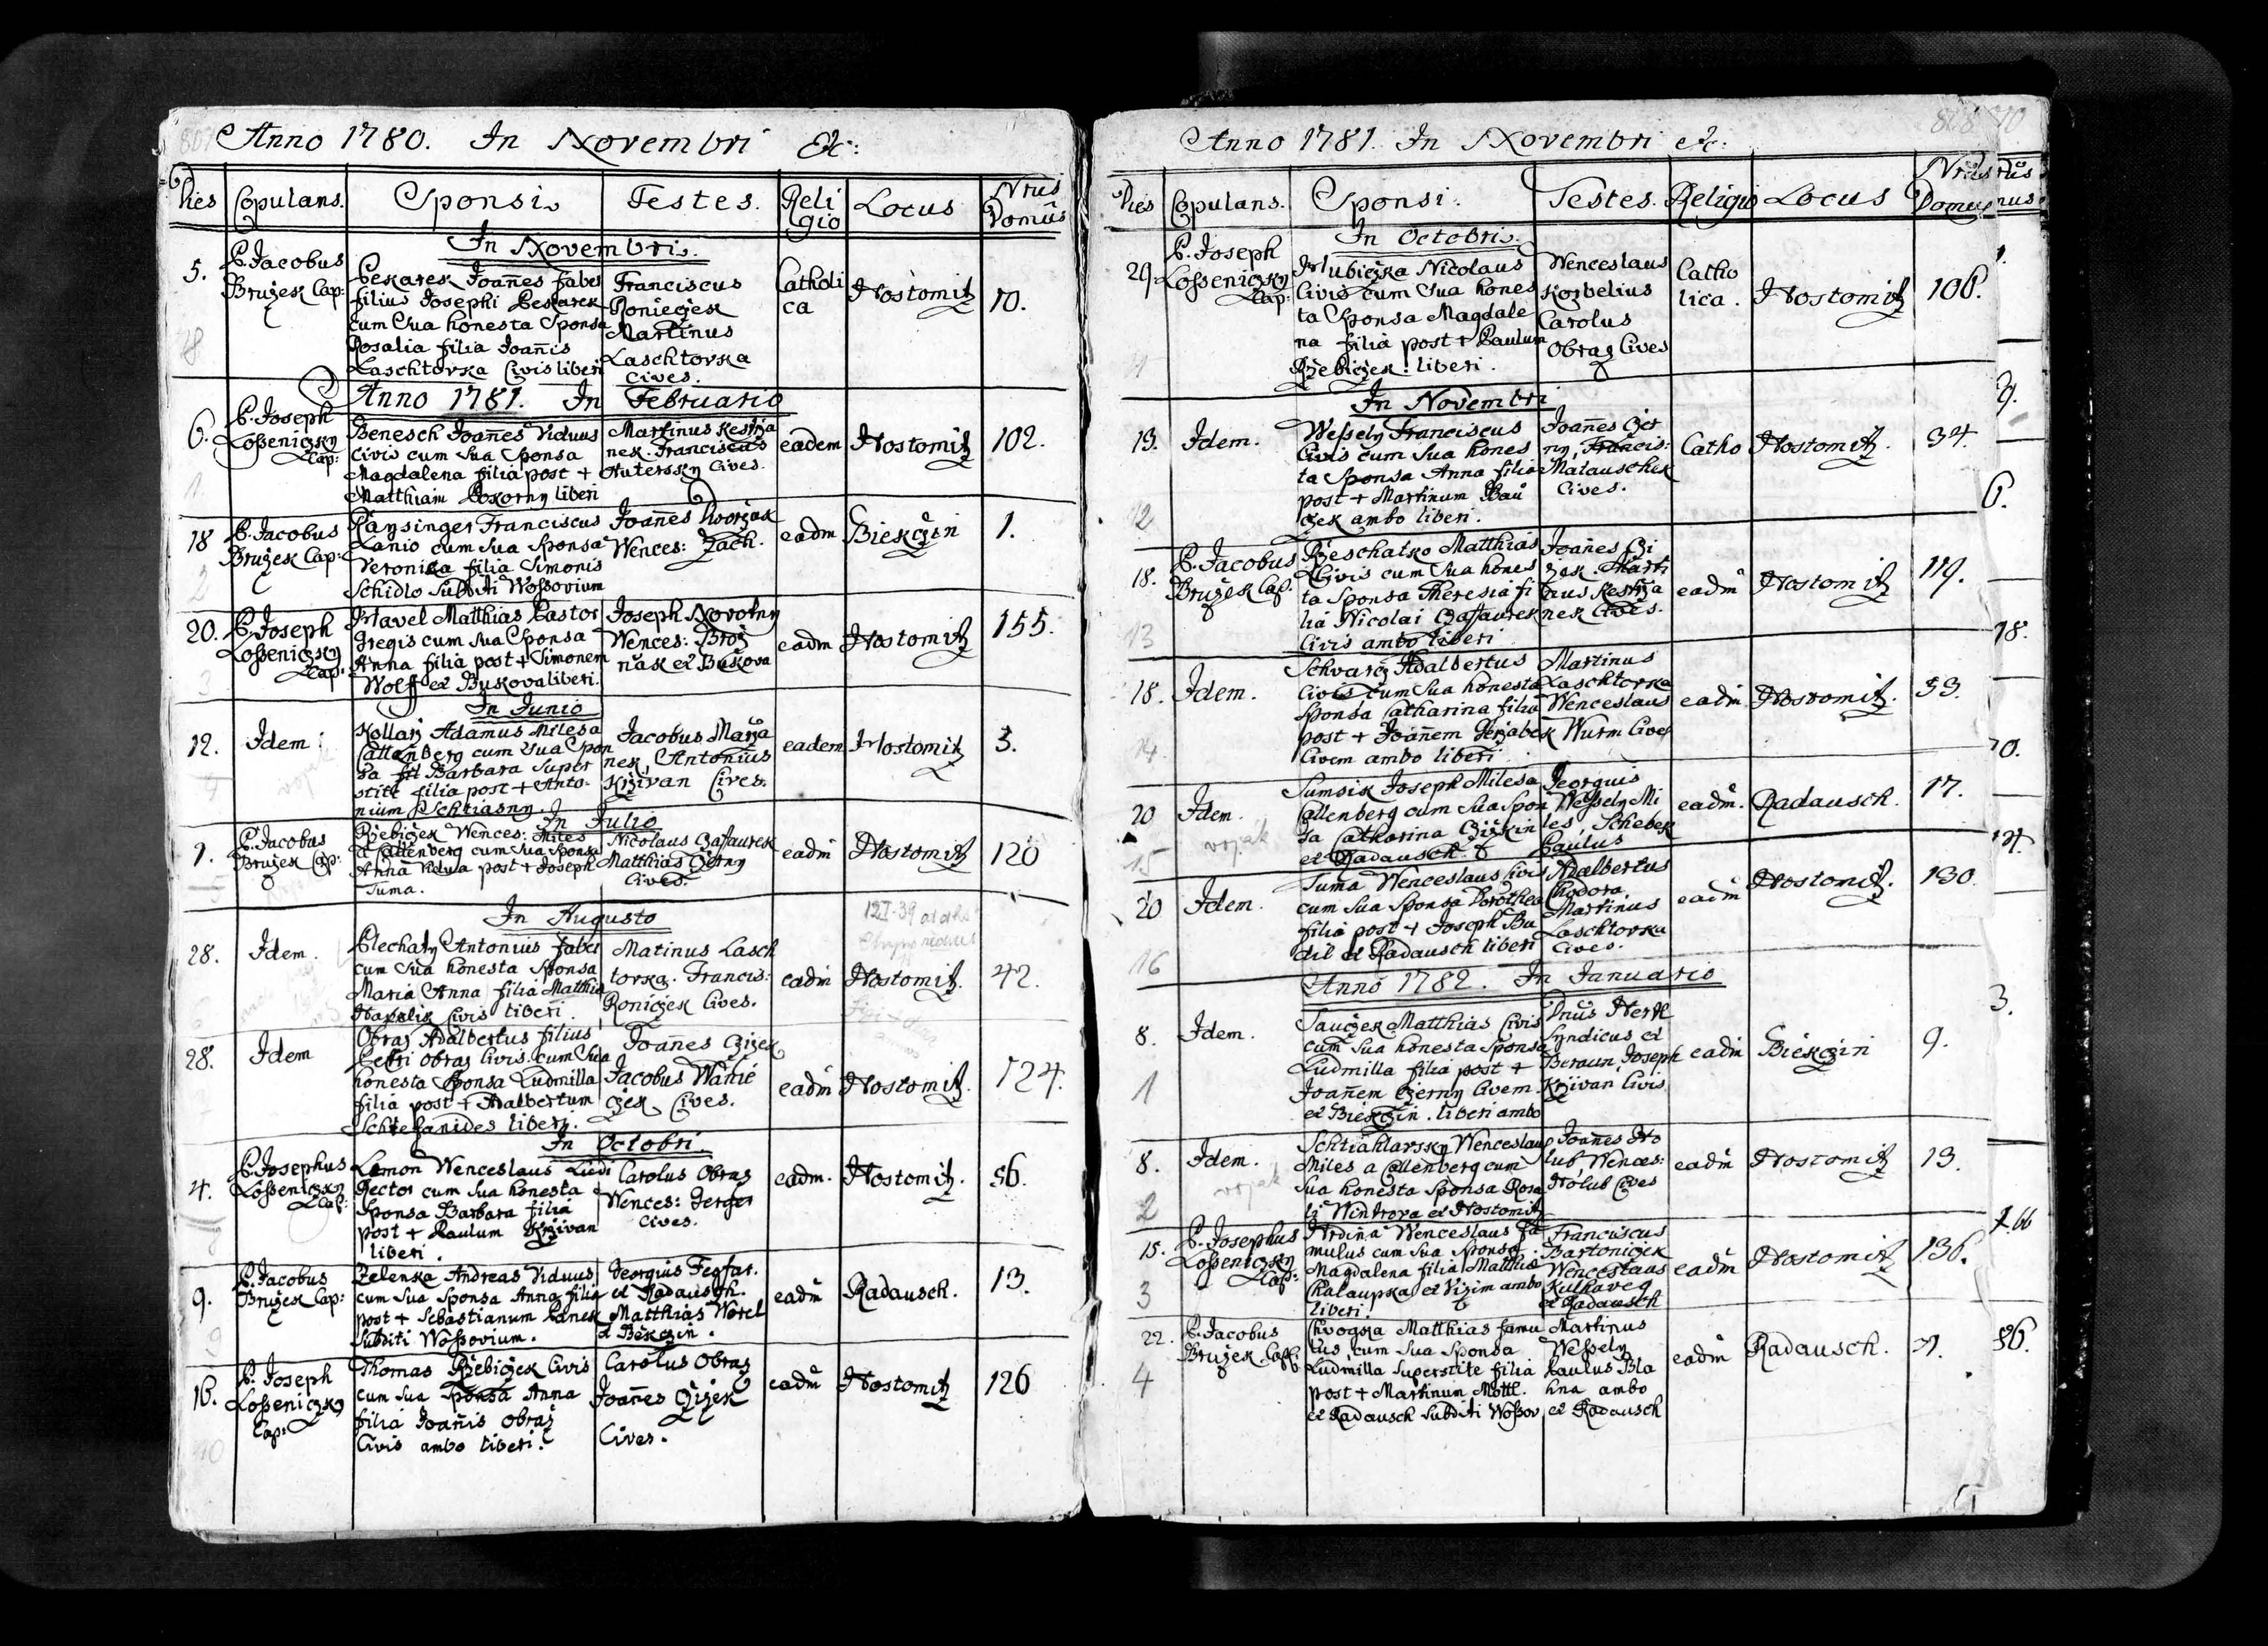 Anno 1780. In Novembri &c:
Dies Copulans. Sponsi Testes. Religio Locus Nrus Domûs
In Novembri.
5. P. Jacobus Brużek Cap:
Pekarek Joañes faber
filius Josephi Pekarek
cum Sua honesta Sponsa
Rosalia filia Joañis
Laschtovka Civis liberi
Franciscus
Roniećzek
Martinus
Laschtovka
Cives.
Catholi
ca
Hostomitz
10.
Anno 1781. In Februario
6. P. Joseph
Loßeniczky
Cap:
Benesch Joañes Viduus
Civis cum Sua Sponsa
Magdalena filia post +
Matthiam Pokorny liberi
Martinus Kestrza
nek. Franciscus
Cives.
eadem
Hostomitz
102.
18 P. Jacobus
Bružek Cap:
Raysinger Franciscus
Lanio cum Sua Sponsa
Veronica filia Simonis
Schidlo Subditi Woßovium
Joañes Dworzak
Wences: Zach.
eadm
Biekczin
1.
20. P. Joseph
Loßeniczky
Cap:
Havel Matthias Pastor
gregis cum Sua Sponsa
Anna filia post + Simonem
Wolff ex Bukova liberi.
Joseph Novotny
Wences: Broż
nak ex Bukova
eadm
Hostomitz
155.
In Junio
12. Idem.
Kollarz Adamus Miles a
Callenberg cum Sua Spon
sa Barbara Super
stite filia post + Anto
nium Schtiasny.
Jacobus Marża
nek, Antonius
Krziwan Cives.
eadem
Hostomitz
3.
In Julio
1. P. Jacobus
Bružek Cap:
Rzebiczek Wences: Miles
a Callenberg cum Sua Sponsa
Anna Vidua post + Joseph
Tuma.
Nicolaus Czasaurek
Matthias Czerny
Cives.
eadm
Hostomitz
120
In Augusto
28. Idem.
Plechaty Antonius faber
cum Sua honesta Sponsa
Maria Anna filia Matthiæ
Havelik Civis liberi.
Matinus Lasch
tovka. Francis:
Roniczek Cives.
eadm
Hostomitz.
42.
28. Idem
Obraz Adalbertus filius
Petri Obraz Civis cum Sua
honesta Sponsa Ludmilla
filia post + Adalbertum
Schtefanides liberi.
Joañes Czizek
Jacobus Wanie
czek Cives.
eadm
Hostomitz.
124.
In Octobri.
4. P. Josephus
Loßeniczky
Cap:
Lemon Wenceslaus Ludi
Rector cum Sua honesta
Sponsa Barbara filia
post + Paulum Krziwan
liberi.
Carolus Obraz
Wences: Jerger
Cives.
eadm.
Hostomitz.
56.
9. P. Jacobus
Bružek Cap:
Zelenka Andreas Viduus
cum Sua Sponsa Anna filia
post + Sebastianum Panek
Subditi Woßovium.
Georgius Fegfar.
ex Radausch.
Matthias Worel
ex Bekczin.
eadm
Radausch.
13.
16. P. Joseph
Loßeniczky
Cap:
Thomas Rzebiczek Civis
cum Sua Sponsa Anna
filia Joañis Obraz
Civis ambo liberi.
Carolus Obraz
Joañes Czizek
Cives.
eadm
Hostomitz
126
Anno 1781. In Novembri &c:
Dies Copulans. Sponsi. Testes. Religio Locus Nrus Domus
In Octobri.
29 P. Joseph
Loßeniczky
Cap:
Hlubiczka Nicolaus
Civis cum Sua hones
ta Sponsa Magdale
na filia post + Paulum
Rzebiczek. liberi.
Wenceslaus
Korbelius
Carolus
Obraz Cives
Catho
lica.
Hostomitz
106.
In Novembri
13. Idem.
Weßely Franciscus
Civis cum Sua hones
ta Sponsa Anna filia
post + Martinum Bau
czek ambo liberi.
Joañes Czer
ny, Francis:
Matauschek
Cives.
Catho
Hostomitz.
34.
12
18. P. Jacobus
Bružek Cap.
Rzeschatko Matthias
Civis cum Sua hones
ta Sponsa Theresia fi
lia Nicolai Czasaurek
Civis ambo liberi
Joañes Czi
zek. Marti
nus Kestrza
nek Cives.
eadm
Hostomitz
119.
13
18. Idem.
Schvarcz Adalbertus
Civis cum Sua honesta
Sponsa Catharina filia
post + Joañem Jerzabek
Civem ambo liberi.
Martinus
Laschtovka
Wenceslaus
Wurm Cives
eadm
Hostomitz.
53.
14.
20 Idem.
Sumsik Joseph Miles a
Callenberg cum Sua Spon
sa Catharina Cziżkin
ex Radausch.
Georgius
Weßely Mi
les, Schebek
Paulus
eadm.
Radausch.
17.
15
vojak
20 Idem.
Tuma Wenceslaus Civis
cum Sua Sponsa Dorothea
filia post + Joseph Bu
dil ex Radausch liberi
Adalbertus
Chodora,
Martinus
Laschtovka
Cives.
eadm
Hostomitz.
130.
16
Anno 1782. In Januario
8. Idem.
Sauczek Matthias Civis
cum Sua honesta Sponsa
Ludmilla filia post +
Joañem Czerny Civem.
ex Biekczin. liberi ambo
Dnus Hertl
Syndicus ex
Beraun, Joseph
Krzivan Civis
eadm
Biekczin
9.
1
8. Idem.
Schtiahlavsky Wenceslaus
Miles a Callenberg cum
Sua honesta Sponsa Rosa
li Wintrova ex Hostomitz
Joañes Ho
lub, Wences:
Holub Cives
eadm
Hostomitz
13.
2
vojak
15. P. Josephus
Loßeniczky
Cap:
Hrdina Wenceslaus fa
mulus cum Sua Sponsa
Magdalena filia Matthiæ
Chalaupka ex Vizim ambo
liberi.
Franciscus
Bartoniczek
Wenceslaus
Kulhaveg
ex Radausch
eadm
Hostomitz
136.
3
22. P. Jacobus
Bružek Cap:
Chvogka Matthias famu
lus cum Sua Sponsa
Ludmilla Superstite filia
post + Martinum Mottl.
ex Radausch Subditi Woßov
Martinus
Weßely
Paulus Bla
hna ambo
ex Radausch
eadm
Radausch.
4